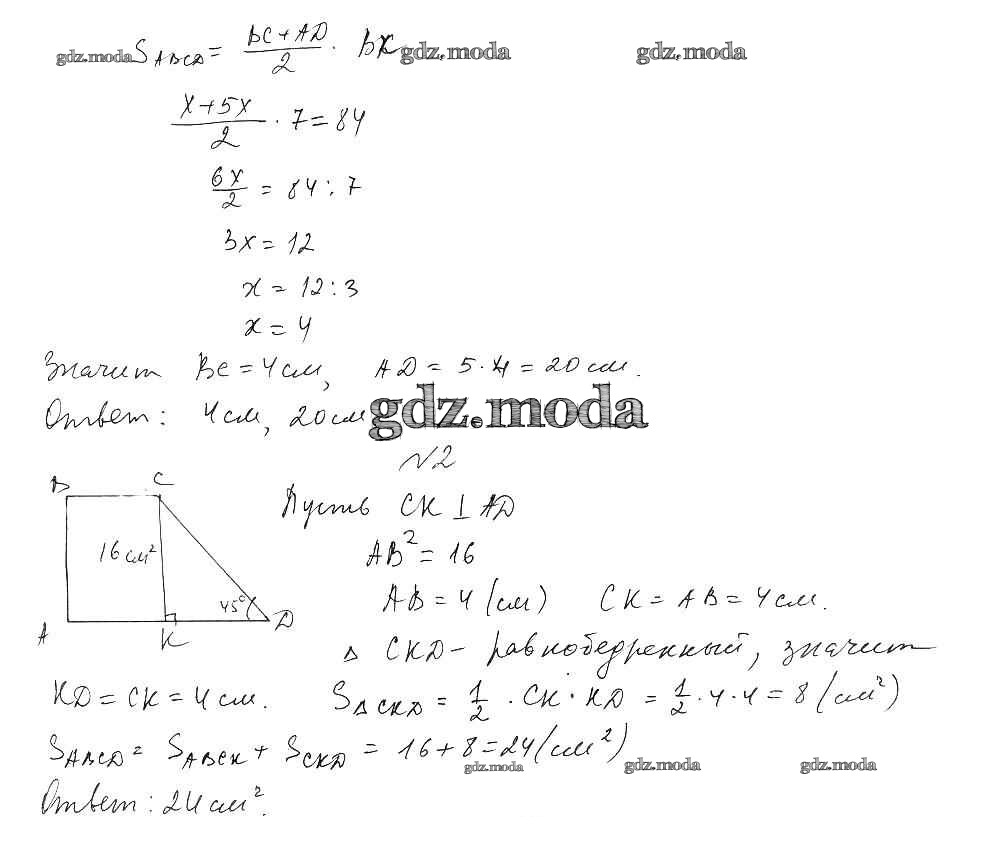 gdz.moda S_ABCD = (BC + AD)/2 · BK gdz.moda gdz.moda
(x + 5x)/2 · 7 = 84
6x/2 = 84 : 7
3x = 12
x = 12 : 3
x = 4
Значит BC = 4 см, AD = 5 · 4 = 20 см.
Ответ: 4 см, 20 см gdz.moda
№2
B C
Пусть CK ⊥ AD
16 см²
AB² = 16
45°
AB = 4 (см) CK = AB = 4 см.
A K D
△ CKD - равнобедренный, значит
KD = CK = 4 см. S_△CKD = 1/2 · CK · KD = 1/2 · 4 · 4 = 8 (см²)
S_ABCD = S_ABCK + S_CKD = 16 + 8 = 24 (см²)
gdz.moda gdz.moda gdz.moda
Ответ: 24 см².